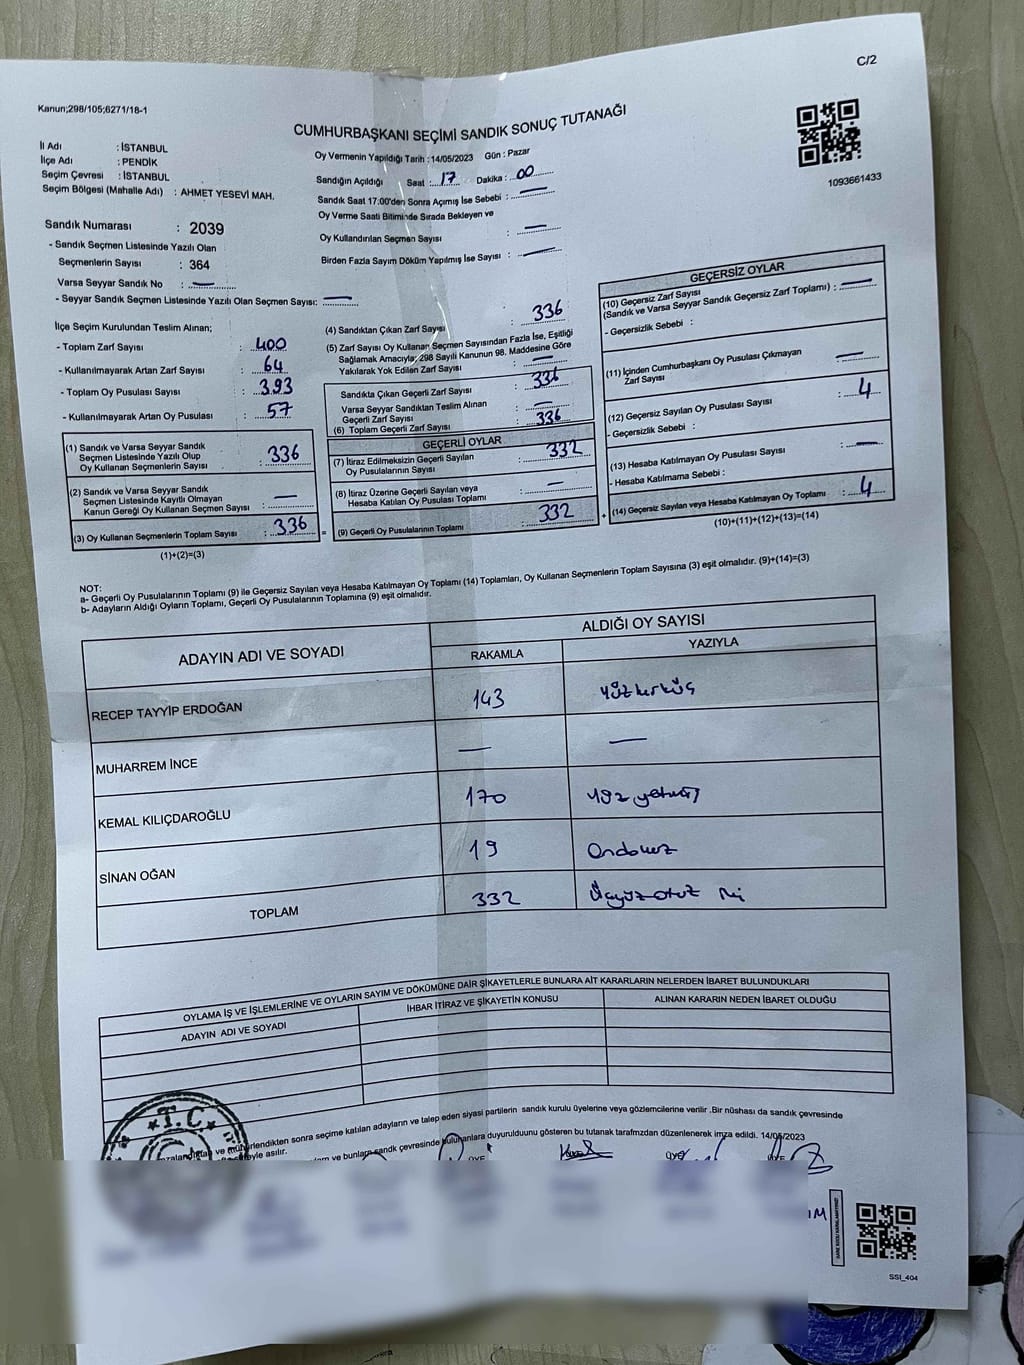 C/2
Kanun;298/105;6271/18-1
CUMHURBAŞKANI SEÇİMİ SANDIK SONUÇ TUTANAĞI
İl Adı : İSTANBUL
İlçe Adı : PENDİK
Seçim Çevresi : İSTANBUL
Seçim Bölgesi (Mahalle Adı) : AHMET YESEVİ MAH.
Oy Vermenin Yapıldığı Tarih : 14/05/2023 Gün : Pazar
Sandığın Açıldığı Saat : 17 Dakika : 00
Sandık Saat 17:00'den Sonra Açımış İse Sebebi : —
Oy Verme Saati Bitiminde Sırada Bekleyen ve
Oy Kullandırılan Seçmen Sayısı : —
Birden Fazla Sayım Döküm Yapılmış İse Sayısı : —
1093661433
Sandık Numarası : 2039
- Sandık Seçmen Listesinde Yazılı Olan
Seçmenlerin Sayısı : 364
Varsa Seyyar Sandık No : —
- Seyyar Sandık Seçmen Listesinde Yazılı Olan Seçmen Sayısı: —
İlçe Seçim Kurulundan Teslim Alınan;
- Toplam Zarf Sayısı : 400
- Kullanılmayarak Artan Zarf Sayısı : 64
- Toplam Oy Pusulası Sayısı : 393
- Kullanılmayarak Artan Oy Pusulası : 57
(1) Sandık ve Varsa Seyyar Sandık
Seçmen Listesinde Yazılı Olup
Oy Kullanan Seçmenlerin Sayısı : 336
(2) Sandık ve Varsa Seyyar Sandık
Seçmen Listesinde Kayıtlı Olmayan
Kanun Gereği Oy Kullanan Seçmen Sayısı : —
(3) Oy Kullanan Seçmenlerin Toplam Sayısı : 336
(1)+(2)=(3)
(4) Sandıktan Çıkan Zarf Sayısı : 336
(5) Zarf Sayısı Oy Kullanan Seçmen Sayısından Fazla İse, Eşitliği
Sağlamak Amacıyla; 298 Sayılı Kanunun 98. Maddesine Göre
Yakılarak Yok Edilen Zarf Sayısı : —
Sandıkta Çıkan Geçerli Zarf Sayısı : 336
Varsa Seyyar Sandıktan Teslim Alınan
Geçerli Zarf Sayısı : —
(6) Toplam Geçerli Zarf Sayısı : 336
GEÇERLİ OYLAR
(7) İtiraz Edilmeksizin Geçerli Sayılan
Oy Pusulalarının Sayısı : 332
(8) İtiraz Üzerine Geçerli Sayılan veya
Hesaba Katılan Oy Pusulası Toplamı : —
= (9) Geçerli Oy Pusulalarının Toplamı : 332 +
GEÇERSİZ OYLAR
(10) Geçersiz Zarf Sayısı
(Sandık ve Varsa Seyyar Sandık Geçersiz Zarf Toplamı) : —
- Geçersizlik Sebebi :
(11) İçinden Cumhurbaşkanı Oy Pusulası Çıkmayan
Zarf Sayısı : —
(12) Geçersiz Sayılan Oy Pusulası Sayısı : 4
- Geçersizlik Sebebi :
(13) Hesaba Katılmayan Oy Pusulası Sayısı : —
- Hesaba Katılmama Sebebi :
(14) Geçersiz Sayılan veya Hesaba Katılmayan Oy Toplamı : 4
(10)+(11)+(12)+(13)=(14)
NOT:
a- Geçerli Oy Pusulalarının Toplamı (9) ile Geçersiz Sayılan veya Hesaba Katılmayan Oy Toplamı (14) Toplamları, Oy Kullanan Seçmenlerin Toplam Sayısına (3) eşit olmalıdır. (9)+(14)=(3)
b- Adayların Aldığı Oyların Toplamı, Geçerli Oy Pusulalarının Toplamına (9) eşit olmalıdır.
ADAYIN ADI VE SOYADI ALDIĞI OY SAYISI
RAKAMLA YAZIYLA
RECEP TAYYİP ERDOĞAN 143 Yüzkırküç
MUHARREM İNCE — —
KEMAL KILIÇDAROĞLU 170 Yüz yetmiş
SİNAN OĞAN 19 Ondokuz
TOPLAM 332 Üçyüzotuz iki
OYLAMA İŞ VE İŞLEMLERİNE VE OYLARIN SAYIM VE DÖKÜMÜNE DAİR ŞİKAYETLERLE BUNLARA AİT KARARLARIN NELERDEN İBARET BULUNDUKLARI
ADAYIN ADI VE SOYADI İHBAR İTİRAZ VE ŞİKAYETİN KONUSU ALINAN KARARIN NEDEN İBARET OLDUĞU
T.C.
mühürlendikten sonra seçime katılan adayların ve talep eden siyasi partilerin sandık kurulu üyelerine veya gözlemcilerine verilir .Bir nüshası da sandık çevresinde
asılır.
ve bunların sandık çevresinde bulunanlara duyurulduunu gösteren bu tutanak tarafımzdan düzenlenerek imza edildi. 14/05/2023
ÜYE ÜYE
SSI_404